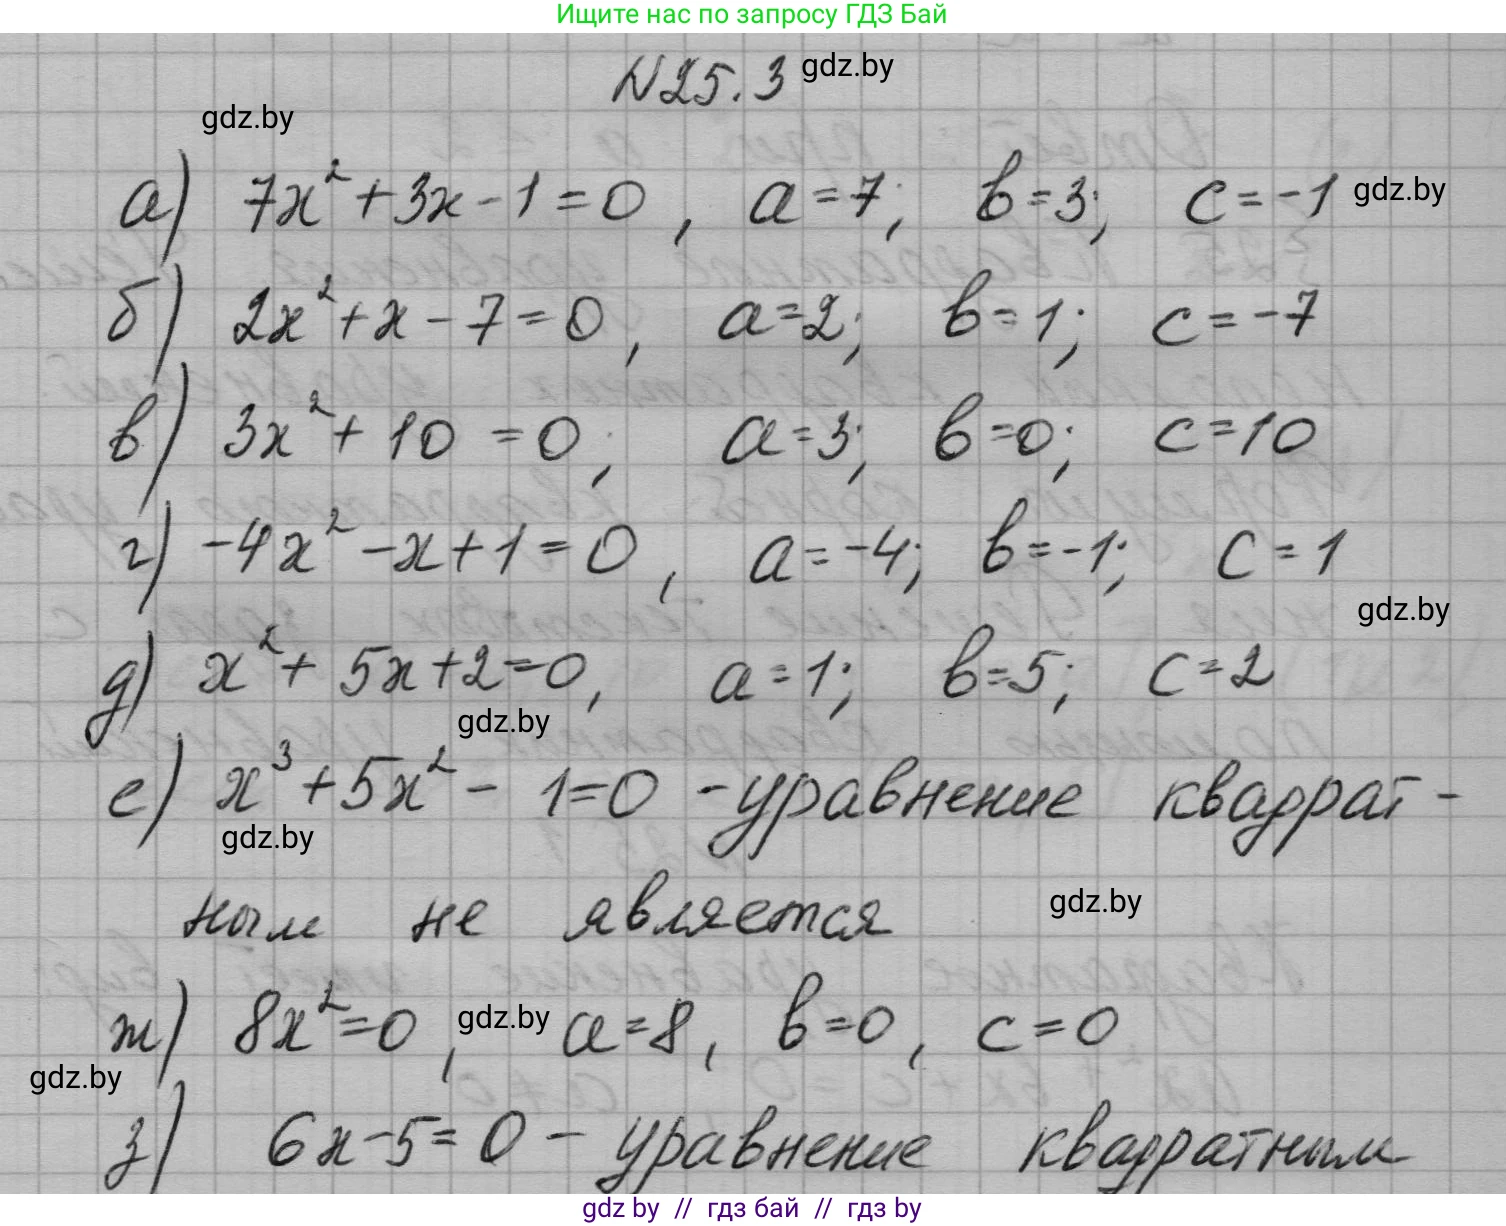 Ищите нас по запросу ГДЗ Бай
N25.3 gdz.by
gdz.by
а) 7x² + 3x - 1 = 0, a = 7; b = 3; c = -1 gdz.by
б) 2x² + x - 7 = 0, a = 2; b = 1; c = -7
в) 3x² + 10 = 0, a = 3; b = 0; c = 10
г) -4x² - x + 1 = 0, a = -4; b = -1; c = 1
gdz.by
д) x² + 5x + 2 = 0, a = 1; b = 5; c = 2
gdz.by
е) x³ + 5x² - 1 = 0 - уравнение квадрат-
gdz.by
ным не является gdz.by
ж) 8x² = 0, gdz.by a = 8, b = 0, c = 0
gdz.by
з) 6x - 5 = 0 - уравнение квадратным
gdz by // гдз бай // гдз by